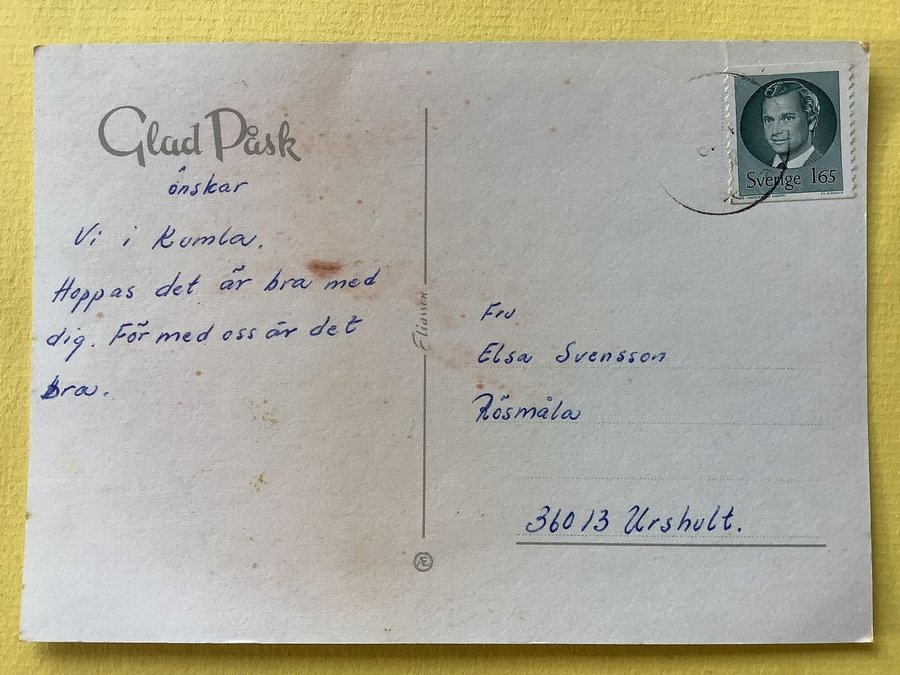 Glad Påsk
önskar
Vi i Kumla.
Hoppas det är bra med
dig. För med oss är det
bra.
Eliasson
Æ
Sverige 165
Fru
Elsa Svensson
Rösmåla
360 13 Urshult.